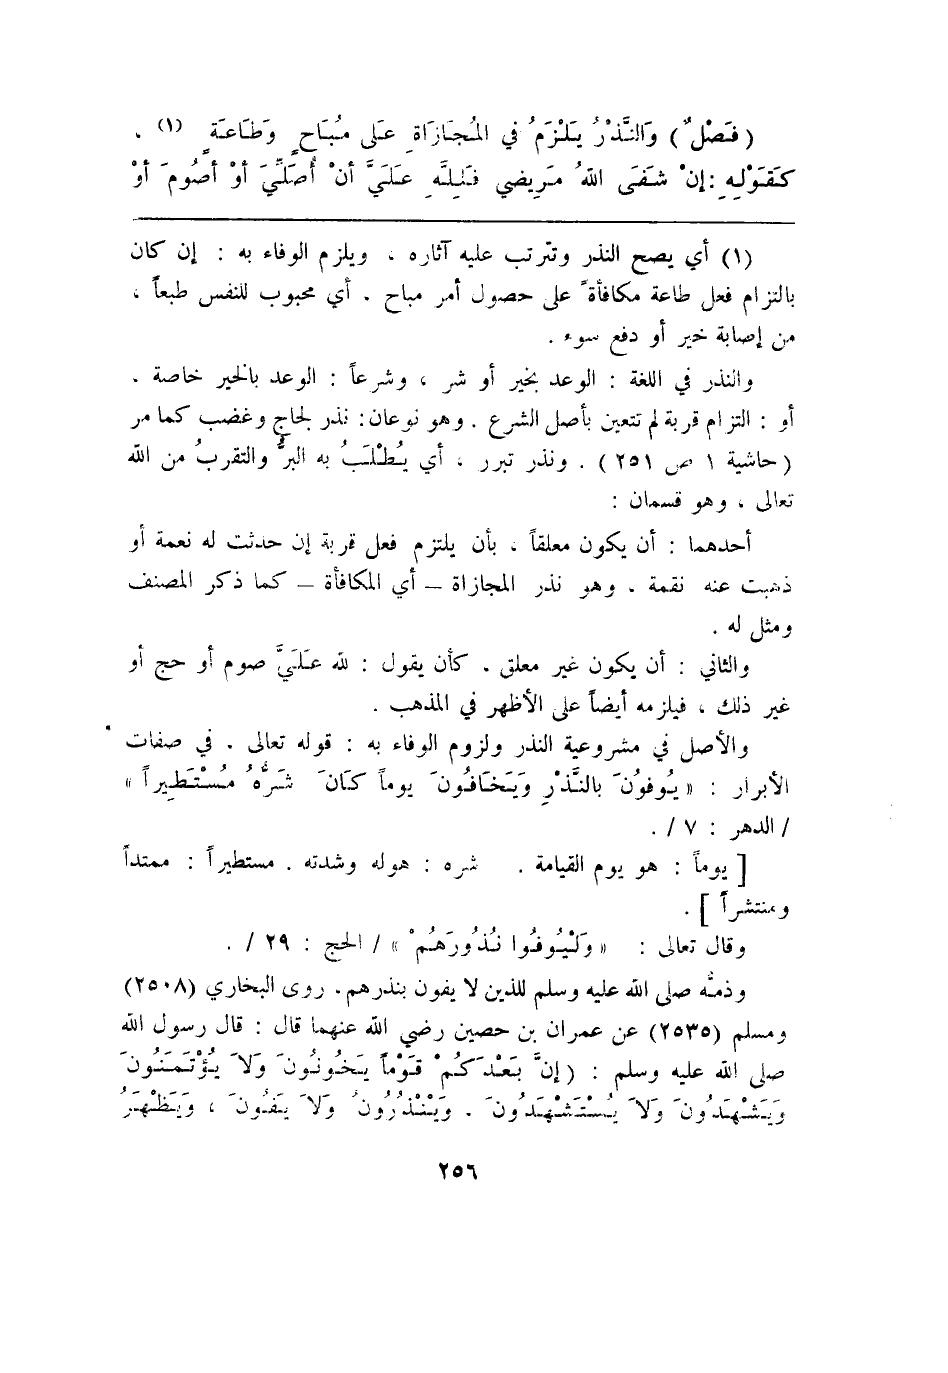 ( فَصْلٌ ) وَالنَّذْرُ يَلْزَمُ في المُجَازَاةِ عَلى مُبَاحٍ وَطَاعَةٍ (١) .
كَقَوْلِهِ : إنْ شَفَى اللهُ مَرِيضي فَلِلَّهِ عَلَيَّ أنْ أُصَلِّيَ أوْ أصُومَ أوْ
(١) أي يصح النذر وتترتب عليه آثاره ، ويلزم الوفاء به : إن كان
بالتزام فعل طاعة مكافأة على حصول أمر مباح . أي محبوب للنفس طبعاً ،
من إصابة خير أو دفع سوء .
والنذر في اللغة : الوعد بخير أو شر ، وشرعاً : الوعد بالخير خاصة .
أو : التزام قربة لم تتعين بأصل الشرع . وهو نوعان : نذر لجاج وغضب كما مر
( حاشية ١ ص ٢٥١ ) . ونذر تبرر ، أي يُطْلَبُ به البرُّ والتقربُ من الله
تعالى ، وهو قسمان :
أحدهما : أن يكون معلقاً ، بأن يلتزم فعل قربة إن حدثت له نعمة أو
ذهبت عنه نقمة . وهو نذر المجازاة – أي المكافأة – كما ذكر المصنف
ومثل له .
والثاني : أن يكون غير معلق . كأن يقول : لله عَلَيَّ صوم أو حج أو
غير ذلك ، فيلزمه أيضاً على الأظهر في المذهب .
والأصل في مشروعية النذر ولزوم الوفاء به : قوله تعالى . في صفات
الأبرار : « يُوفُونَ بالنَّذْرِ وَيَخَافُونَ يوماً كَانَ شَرُّهُ مُسْتَطِيراً »
/ الدهر : ٧ / .
[ يوماً : هو يوم القيامة . شره : هوله وشدته . مستطيراً : ممتداً
ومنتشراً ] .
وقال تعالى : « وَلْيُوفُوا نُذُورَهُمْ » / الحج : ٢٩ / .
وذمُّه صلى الله عليه وسلم للذين لا يفون بنذرهم . روى البخاري (٢٥٠٨)
ومسلم (٢٥٣٥) عن عمران بن حصين رضي الله عنهما قال : قال رسول الله
صلى الله عليه وسلم : ( إنَّ بَعْدَكُمْ قَوْماً يَخُونُونَ وَلاَ يُؤْتَمَنُونَ
وَيَشْهَدُونَ وَلاَ يُسْتَشْهَدُونَ . وَيَنْذُرُونُ وَلاَ يَفُونَ ، وَيَظْهَرُ
٢٥٦